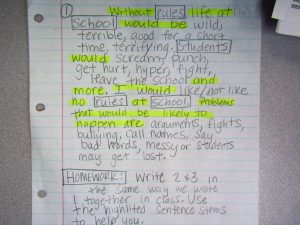 ① Without rules life at (in)
school would be wild,
terrible, good for a short
time, terrifying. Students
would scream, punch,
get hurt, hyper, fight,
leave the school and
more. I would like/not like
no rules at school. Problems
that would be likely to
happen are arguments, fights,
bullying, call names, say
bad words, messy or students
may get lost.
HOMEWORK: Write 2+3 in
the same way we wrote
1 together in class. Use
the highlited sentence stems
to help you.